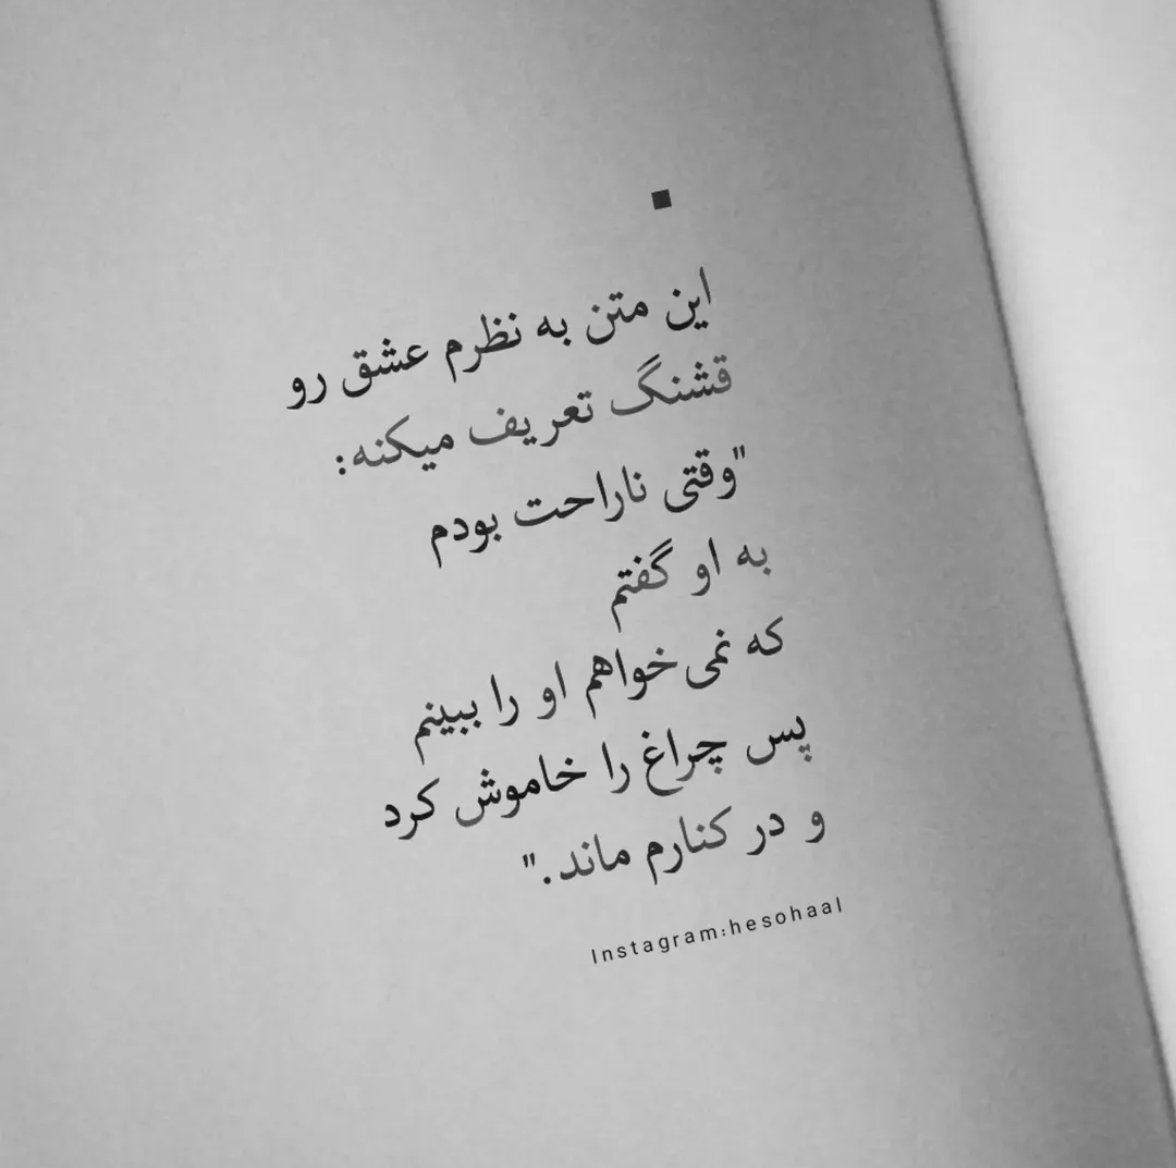 این متن به نظرم عشق رو
قشنگ تعریف میکنه:
"وقتی ناراحت بودم
به او گفتم
که نمی‌خواهم او را ببینم
پس چراغ را خاموش کرد
و در کنارم ماند."
Instagram:hesohaal